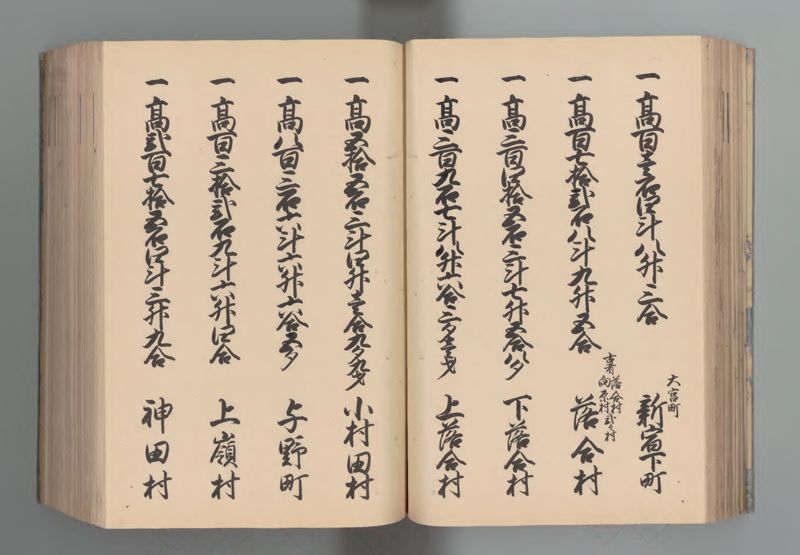 一 高百壱石四斗八升三合 大宮町 新宿下町
一 高百七拾弐石八斗九升五合 古者落合村向原村弐ヶ村 落合村
一 高三百四拾五石三斗七升五合八夕 下落合村
一 高三百九石七斗八升六合三夕壱才 上落合村
一 高五拾五石三斗四升壱合九夕九才 小村田村
一 高八百三石六斗六升六合五夕 与野町
一 高百三拾弐石九斗六升四合 上嶺村
一 高弐百七拾五石四斗三升九合 神田村